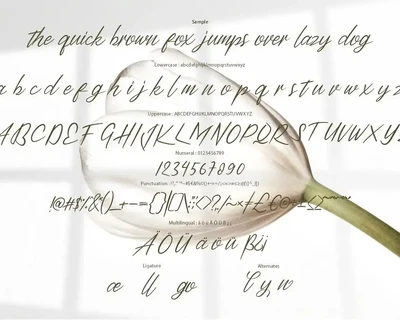 Sample
the quick brown fox jumps over lazy dog
Lowercase : abcdefghijklmnopqrstuvwxyz
a b c d e f g h i j k l m n o p q r s t u v w x y z
Uppercase : ABCDEFGHIJKLMNOPQRSTUVWXYZ
A B C D E F G H I J K L M N O P Q R S T U V W X Y Z
Numeral : 0123456789
1234567890
Punctuation :
!@#$%&()_+-={}|[]\:;<>?,/~
Multilingual : ä ö ü Ä Ö Ü ß
Ä Ö Ü ä ö ü ß
Ligature
Alternates
æ